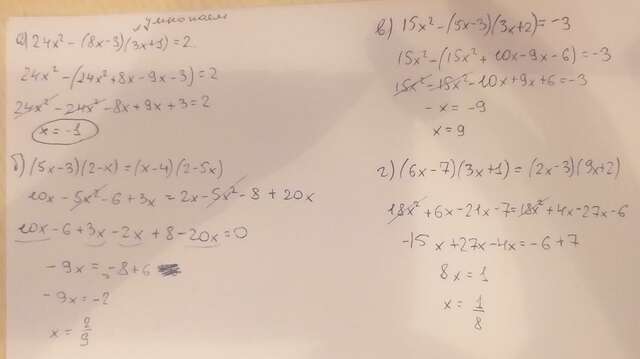 Умножаем
а) 24x² - (8x-3)(3x+1) = 2
24x² - (24x² + 8x - 9x - 3) = 2
24x² - 24x² - 8x + 9x + 3 = 2
x = -1
б) (5x-3)(2-x) = (x-4)(2-5x)
10x - 5x² - 6 + 3x = 2x - 5x² - 8 + 20x
10x - 6 + 3x - 2x + 8 - 20x = 0
-9x = -8+6
-9x = -2
x = 2/9
в) 15x² - (5x-3)(3x+2) = -3
15x² - (15x² + 10x - 9x - 6) = -3
15x² - 15x² - 10x + 9x + 6 = -3
-x = -9
x = 9
г) (6x-7)(3x+1) = (2x-3)(9x+2)
18x² + 6x - 21x - 7 = 18x² + 4x - 27x - 6
-15x + 27x - 4x = -6 + 7
8x = 1
x = 1/8